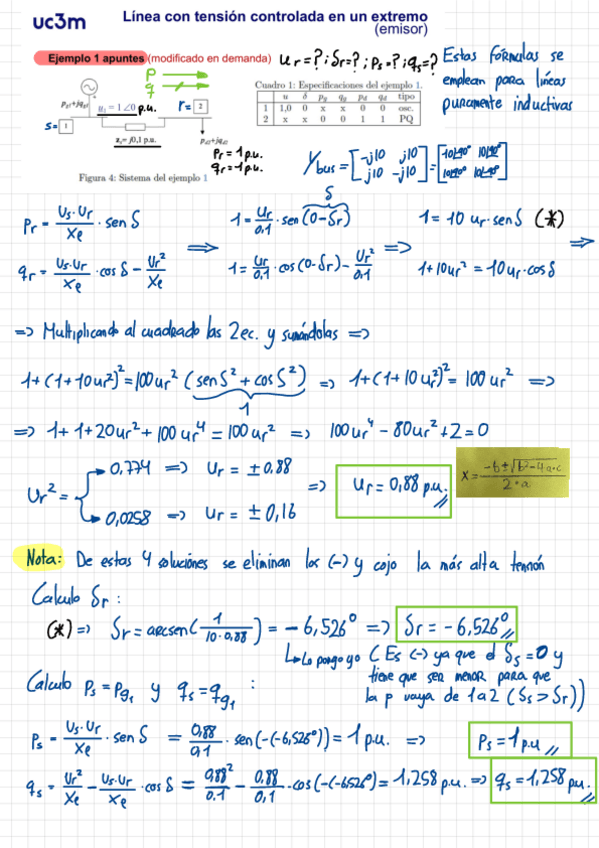 uc3m
Línea con tensión controlada en un extremo
(emisor)
Ejemplo 1 apuntes (modificado en demanda) Ur=? ; δr=? ; Ps=? ; qs=?
Estas fórmulas se
emplean para líneas
puramente inductivas
P
q
u₁ = 1∠0 p.u.
r= 2
s= 1
zₗ= j0,1 p.u.
Pr = 1 p.u.
qr = 1 p.u.
Figura 4: Sistema del ejemplo 1
Cuadro 1: Especificaciones del ejemplo 1.
u δ pg qg pd qd tipo
1 1,0 0 x x 0 0 osc.
2 x x 0 0 1 1 PQ
Ybus = [-j10 j10 j10 -j10] = [10∟-90° 10∟90° 10∟90° 10∟-90°]
δ
Pr = Us·Ur/Xe · sen δ => 1 = Ur/0,1 · sen (0-δr) 1 = 10 ur·senδ (*)
qr = Us·Ur/Xe · cos δ - Ur²/Xe 1 = Ur/0,1 · cos (0-δr) - Ur²/0,1 => 1+10ur² = 10ur·cosδ =>
=> Multiplicando al cuadrado las 2ec. y sumándolas =>
1+(1+10ur²)² = 100ur² (senδ² + cosδ²) => 1+(1+10ur²)² = 100ur² =>
1
=> 1+1+20ur²+100ur⁴ = 100ur² => 100ur⁴ - 80ur² + 2 = 0
Ur² = 0,774 => Ur = ±0.88
0,0258 => Ur = ±0,16
=> Ur = 0,88 p.u.
x = -b ± √b²-4a·c / 2·a
Nota: De estas 4 soluciónes se eliminan los (-) y cojo la más alta tensión
Calculo δr :
(*) => δr = arcsen(1/10·0,88) = -6,526° => δr = -6,526°
Lo pongo yo (Es (-) ya que el δs=0 y
tiene que ser menor para que
la p vaya de 1 a 2 (δs>δr))
Calculo Ps = Pg₁ y qs = qg₁ :
Ps = Us·Ur/Xe · sen δ = 0,88/0,1 · sen(-(-6,526°)) = 1 p.u. => Ps = 1 p.u
qs = Ur²/Xe - Us·Ur/Xe · cos δ = 0,88²/0.1 - 0.88/0,1 · cos(-(-6526°) = 1,258 p.u. => qs = 1,258 p.u.